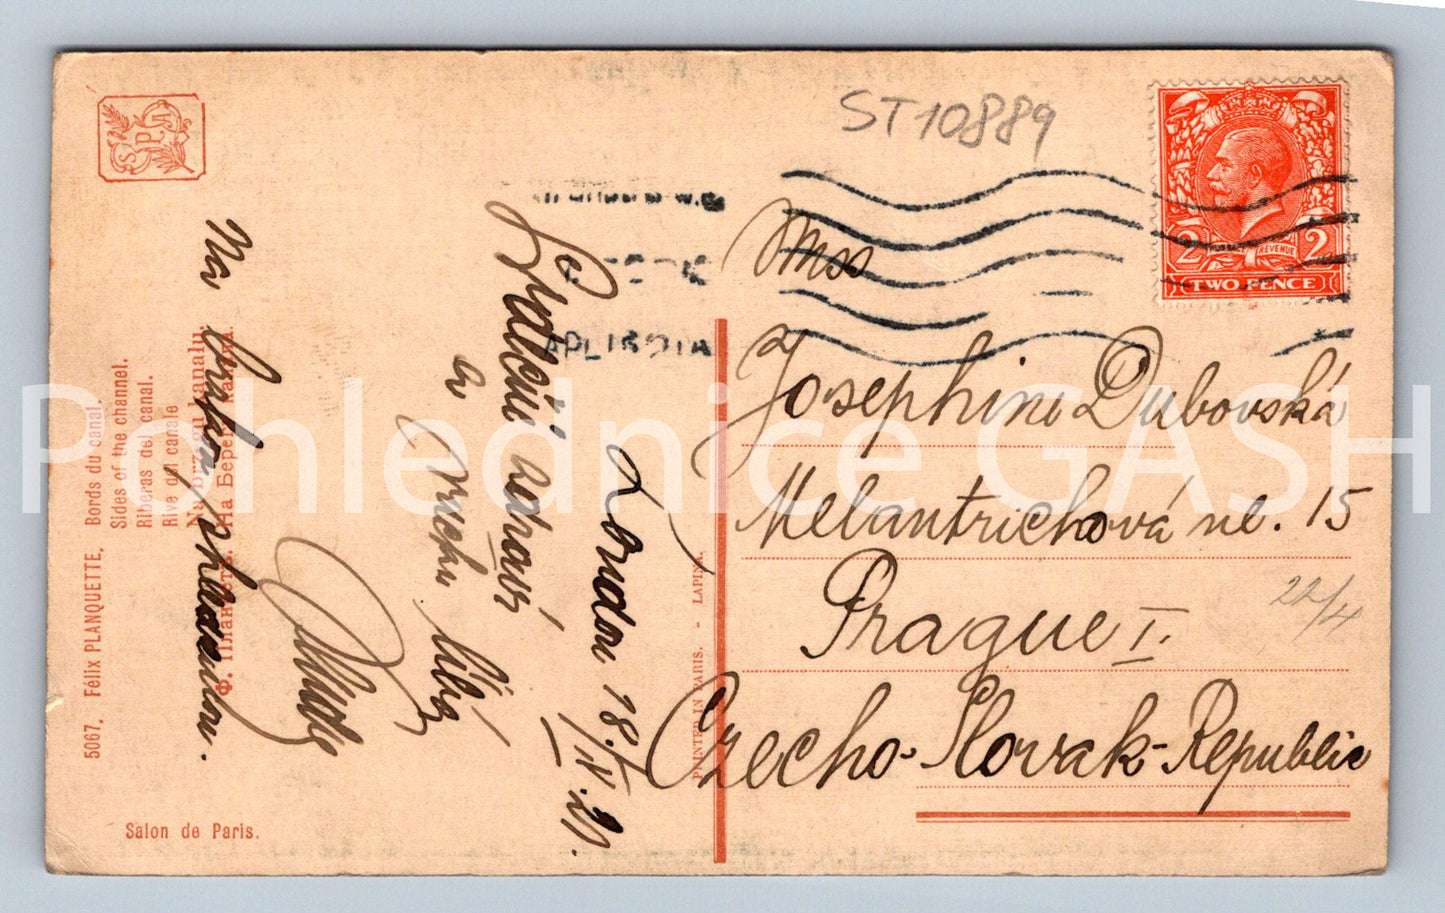 ST10889
Miss
Josephine Dubovská
Melantrichová ul. 15
Prague I.
Czecho-Slovak-Republic
22/4
TWO PENCE
2 2
REVENUE
SPA
London 18./IV.21.
líbá
Na brzkou shledanou.
5067. Félix PLANQUETTE. Bords du canal.
Sides of the channel.
Riberas del canal.
Rive del canale
Na brzegu kanału.
Ф. Планкетъ. На Берегу канала.
Salon de Paris.
PRINTED IN PARIS. - LAPINA.
Pohlednice GASH